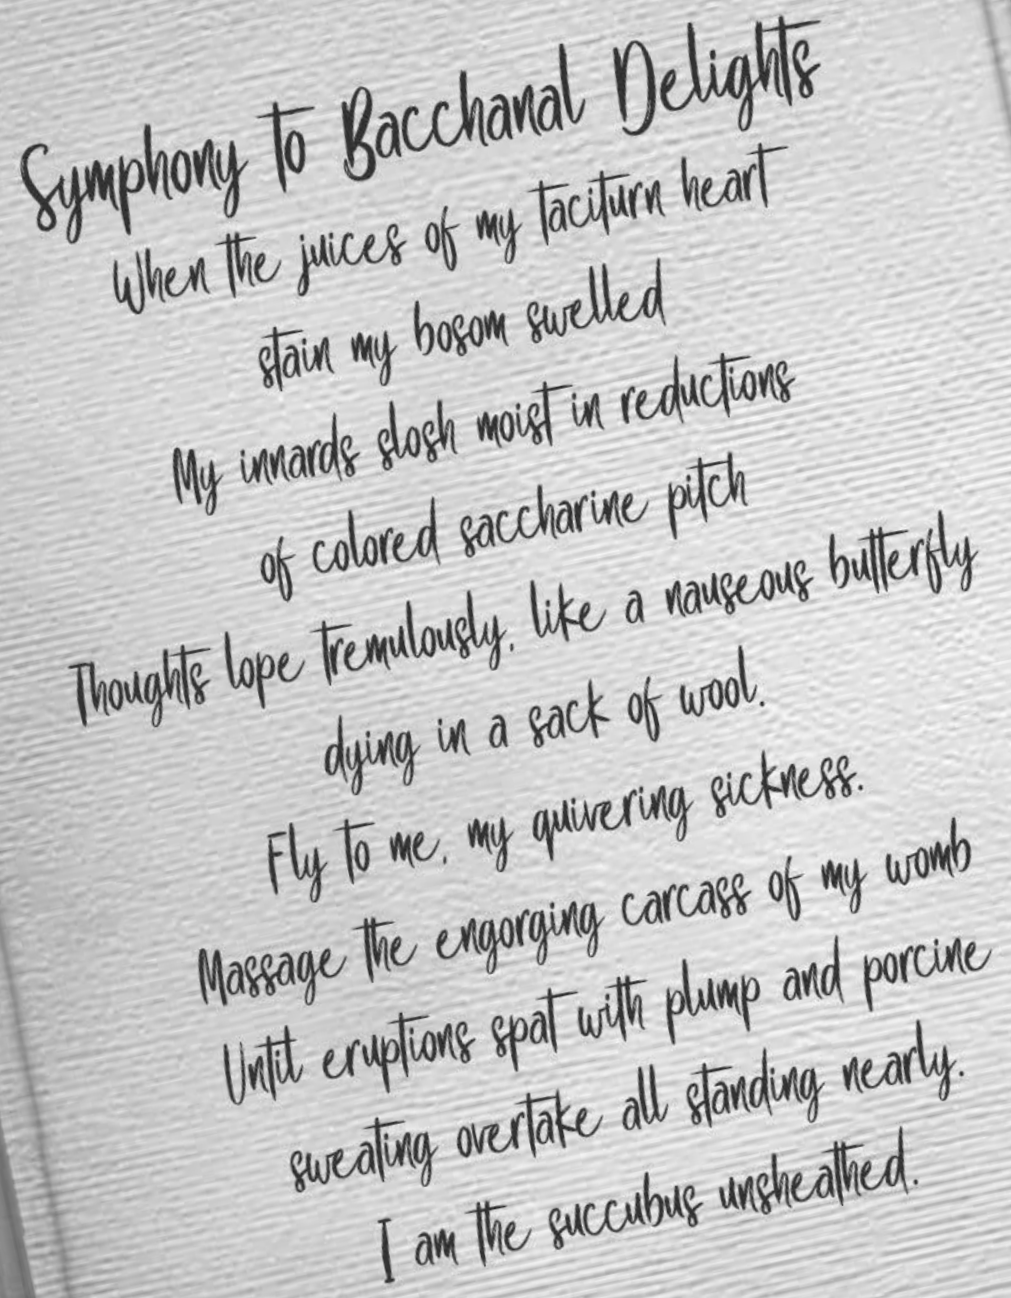 Symphony to Bacchanal Delights
When the juices of my taciturn heart
stain my bosom swelled
My innards slosh moist in reductions
of colored saccharine pitch
Thoughts lope tremulously, like a nauseous butterfly
dying in a sack of wool.
Fly to me, my quivering sickness.
Massage the engorging carcass of my womb
Until eruptions spat with plump and porcine
sweating overtake all standing nearly.
I am the succubus unsheathed.